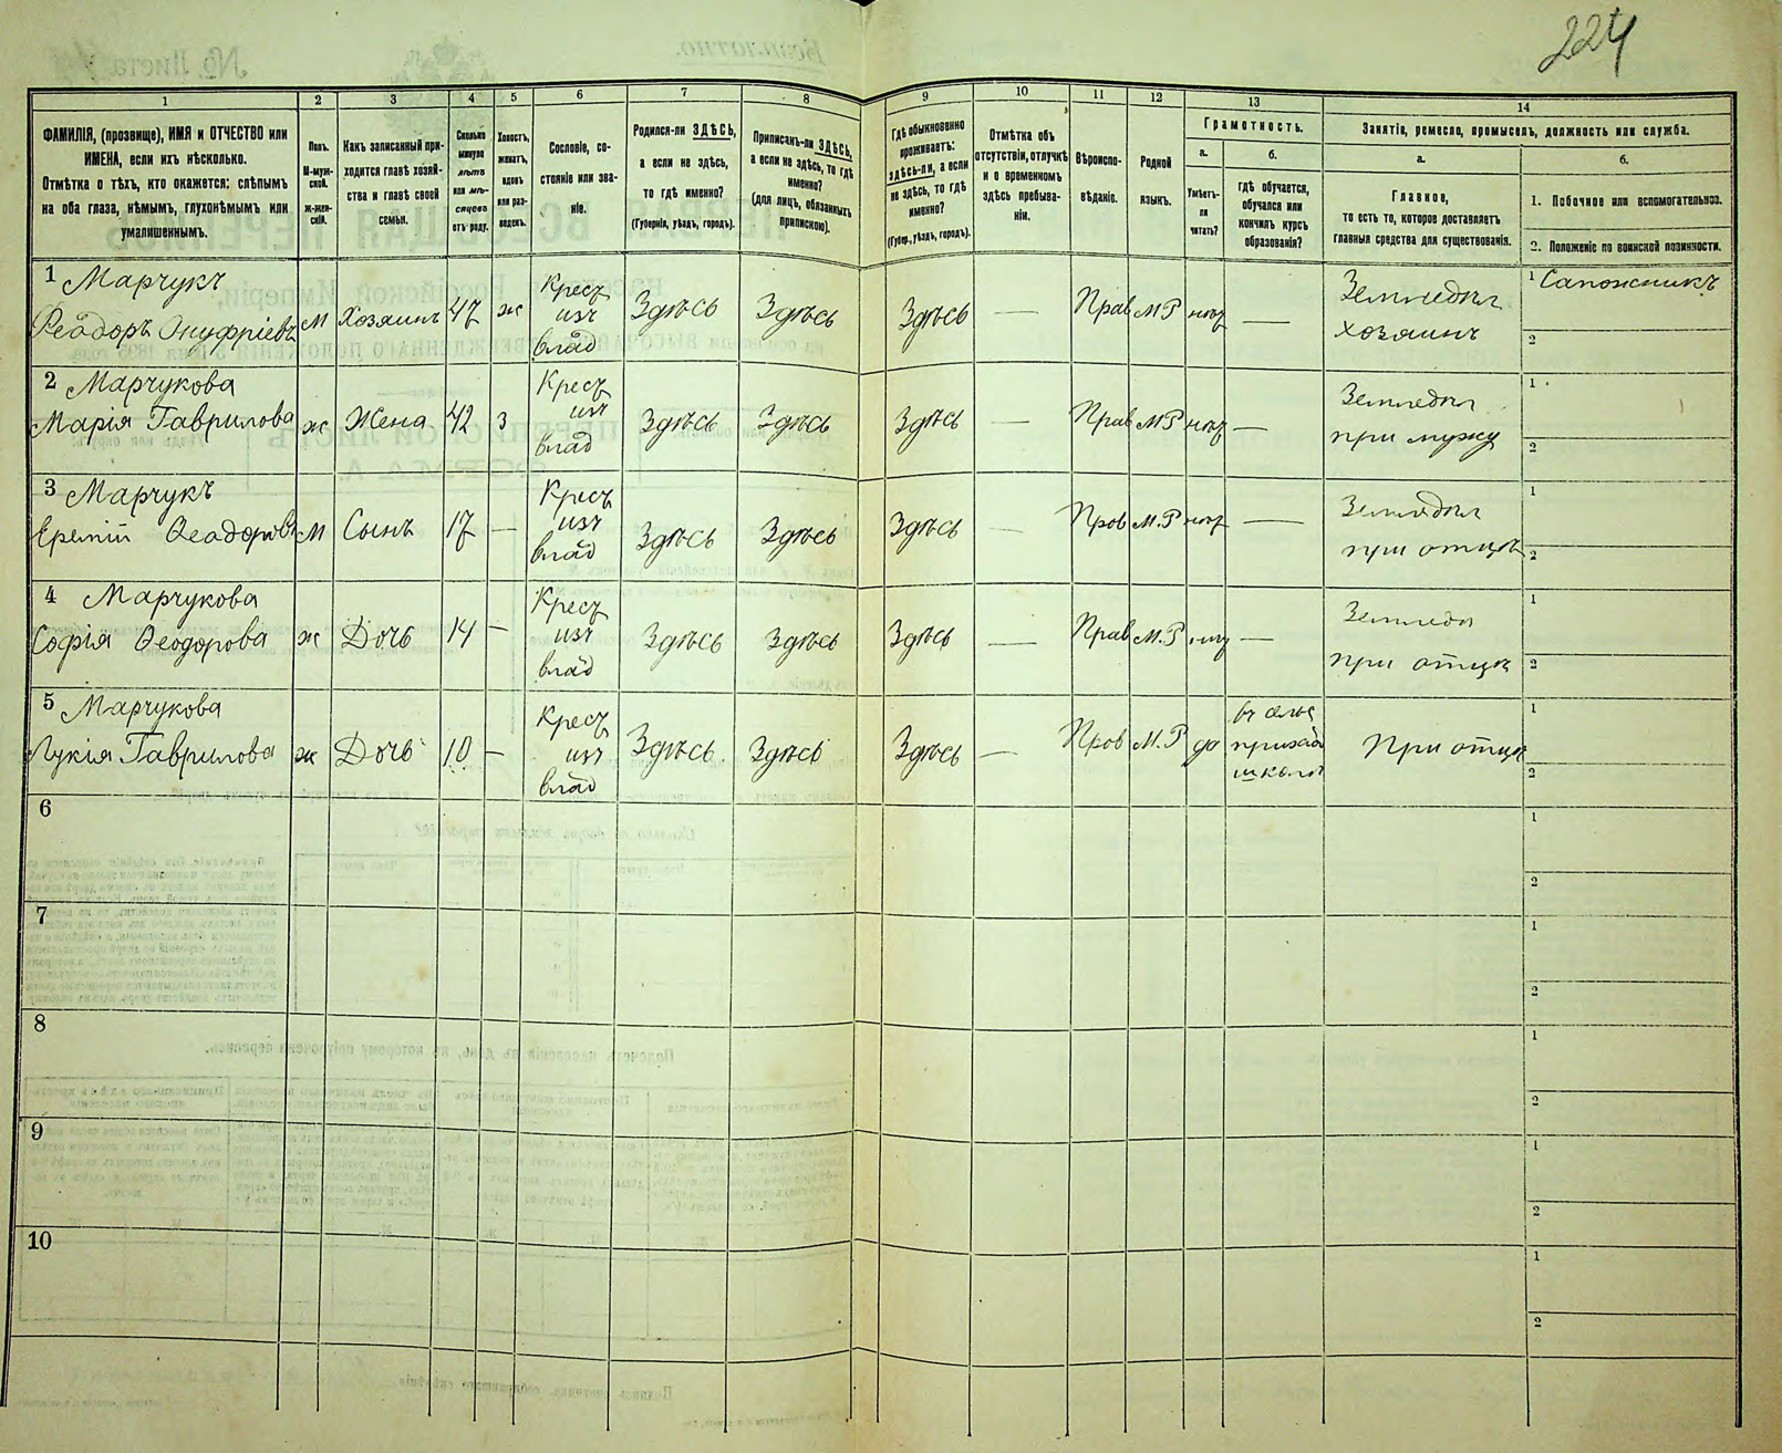 224
1 2 3 4 5 6 7 8 9 10 11 12 13 14
ФАМИЛІЯ, (прозвище), ИМЯ и ОТЧЕСТВО или
ИМЕНА, если ихъ нѣсколько.
Отмѣтка о тѣхъ, кто окажется: слѣпымъ
на оба глаза, нѣмымъ, глухонѣмымъ или
умалишеннымъ.
Полъ.
М-муж-
ской.
Ж-жен-
скій.
Какъ записанный при-
ходится главѣ хозяй-
ства и главѣ своей
семьи.
Сколько
минуло
лѣтъ
или мѣ-
сяцевъ
отъ роду.
Холостъ,
женатъ,
вдовъ
или раз-
веденъ.
Сословіе, со-
стояніе или зва-
ніе.
Родился-ли ЗДѢСЬ,
а если не здѣсь,
то гдѣ именно?
(Губернія, уѣздъ, городъ).
Приписанъ-ли ЗДѢСЬ,
а если не здѣсь, то гдѣ
именно?
(для лицъ, обязанныхъ
припискою).
Гдѣ обыкновенно
проживаетъ:
здѣсь-ли, а если
не здѣсь, то гдѣ
именно?
(Губер., уѣздъ, городъ).
Отмѣтка объ
отсутствіи, отлучкѣ
и о временномъ
здѣсь пребыва-
ніи.
Вѣроиспо-
вѣданіе.
Родной
языкъ.
Грамотность.
а.
Умѣетъ-
ли
читать?
б.
гдѣ обучается,
обучался или
кончилъ курсъ
образованія?
Занятіе, ремесло, промыселъ, должность или служба.
а.
Главное,
то есть то, которое доставляетъ
главныя средства для существованія.
б.
1. Побочное или вспомогательное.
2. Положеніе по воинской повинности.
1 Марчукъ
Феадоръ Онуфріевъ
М
Хозяинъ
47
ж
Крест
изъ
влад
Здѣсь
Здѣсь
Здѣсь
—
Прав
М Р
нѣт
—
Земледѣл
хозяинъ
1 Сапожникъ
2
2 Марчукова
Марія Гаврилова
ж
Жена
42
з
Крест
изъ
влад
Здѣсь
Здѣсь
Здѣсь
—
Прав
М Р
нѣт
—
Земледѣл
при мужу
1
2
3 Марчукъ
Еремій Феадоровъ
М
Сынъ
17
—
Крест
изъ
влад
Здѣсь
Здѣсь
Здѣсь
—
Пров
М. Р
нѣт
—
Земледѣл
при отцѣ
1
2
4 Марчукова
Софія Феодорова
ж
Дочь
14
—
Крест
изъ
влад
Здѣсь
Здѣсь
Здѣсь
—
Прав
М. Р
нѣт
—
Земледѣл
при отцѣ
1
2
5 Марчукова
Лукія Гаврилова
ж
Дочь
10
—
Крест
изъ
влад
Здѣсь
Здѣсь
Здѣсь
—
Пров
М. Р
да
школѣ
При отцѣ
1
2
6
1
2
7
1
2
8
1
2
9
1
2
10
1
2